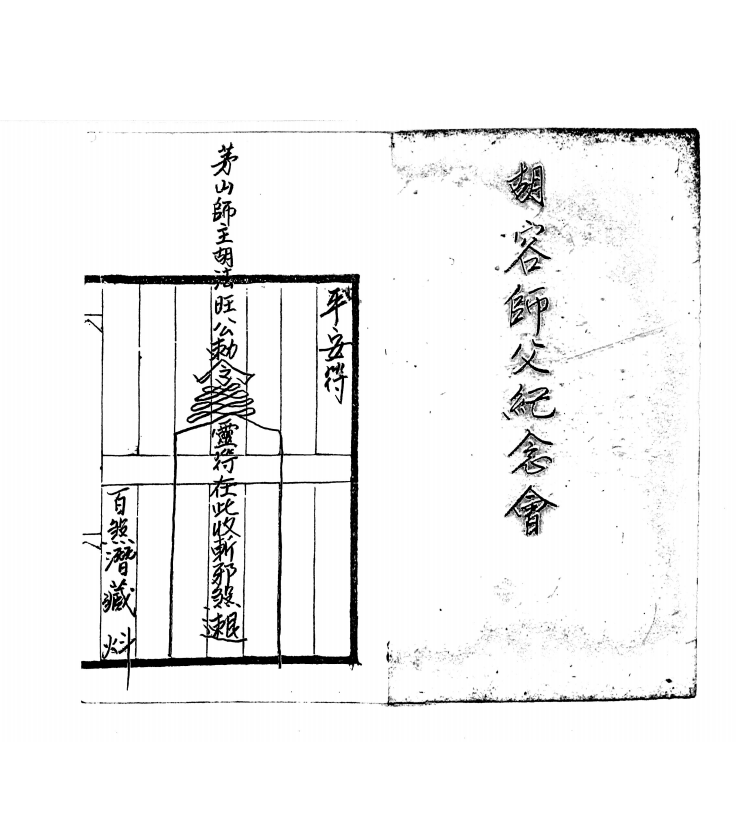 胡容師父紀念會
平安符
茅山師主胡法旺公勅令靈符在此收斬邪煞速退
百煞潛藏